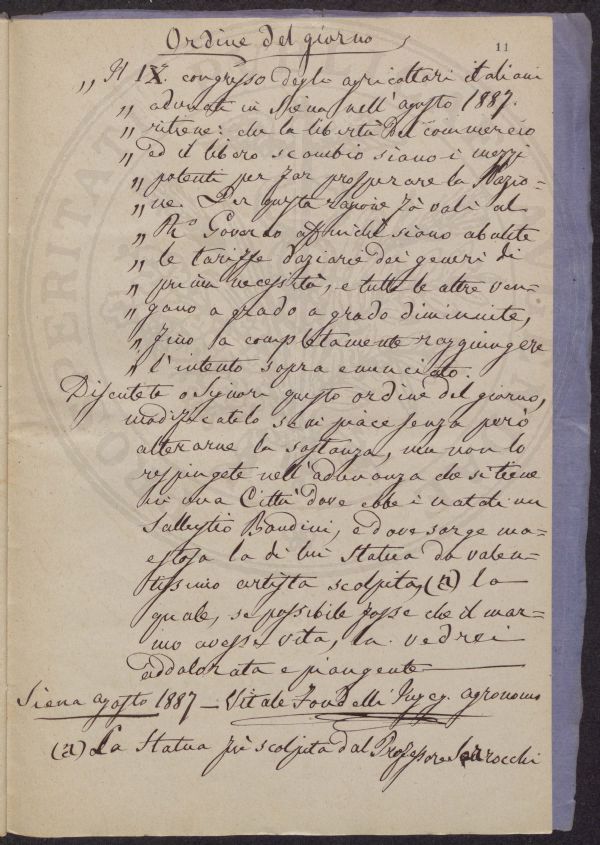 Ordine del giorno
11
„ Il IX. congresso degli agricoltori italiani
„ adunati in Siena nell'agosto 1887.
„ ritiene: che la libertà del commercio
„ ed il libero scambio siano i mezzi
„ potenti per far prosperare la Nazio-
„ ne. Per questa ragione fà voti al
„ R.º Governo affinchè siano abolite
„ le tariffe daziarie dei generi di
„ prima necessità, e tutte le altre ven-
„ gano a grado a grado diminuite,
„ fino a completamente raggiungere
„ l'intento sopra enunciato.
Discutete o Signori questo ordine del giorno,
modificatelo se vi piace senza però
alterarne la sostanza, ma non lo
respingete nell'adunanza che si tiene
in una Città dove ebbe i natali un
Sallustio Bandini, e dove sorge ma-
estosa la di lui statua da valen-
tissimo artista scolpita, (a) la
quale, se possibile fosse che il mar-
mo avesse vita, la vedrei
addolorata e piangente
Siena agosto 1887 – Vitale Fondelli Ingeg. agronomo
(a) La Statua fù scolpita dal Professore Sarrocchi